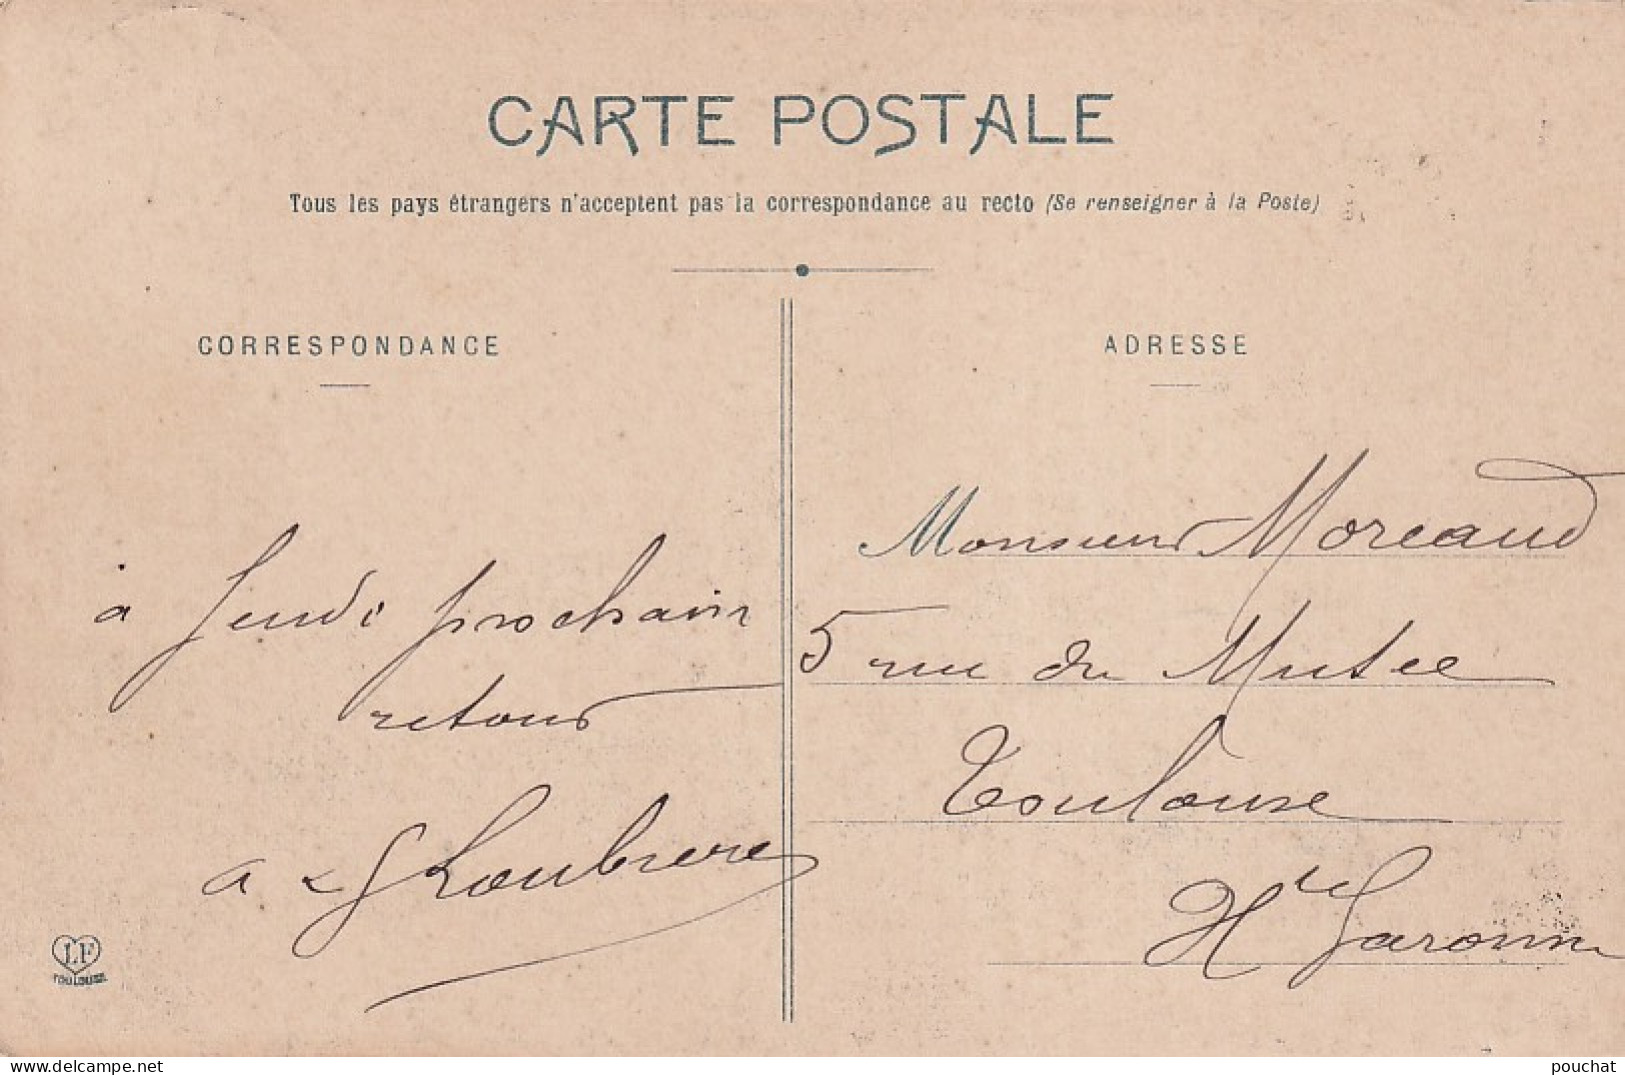 CARTE POSTALE
Tous les pays étrangers n'acceptent pas la correspondance au recto (Se renseigner à la Poste)
CORRESPONDANCE
ADRESSE
à Jeudi prochain
retour
Monsieur Moreaud
5 rue du Musee
Toulouse
Hte Garonne
LF
TOULOUSE
pouchat